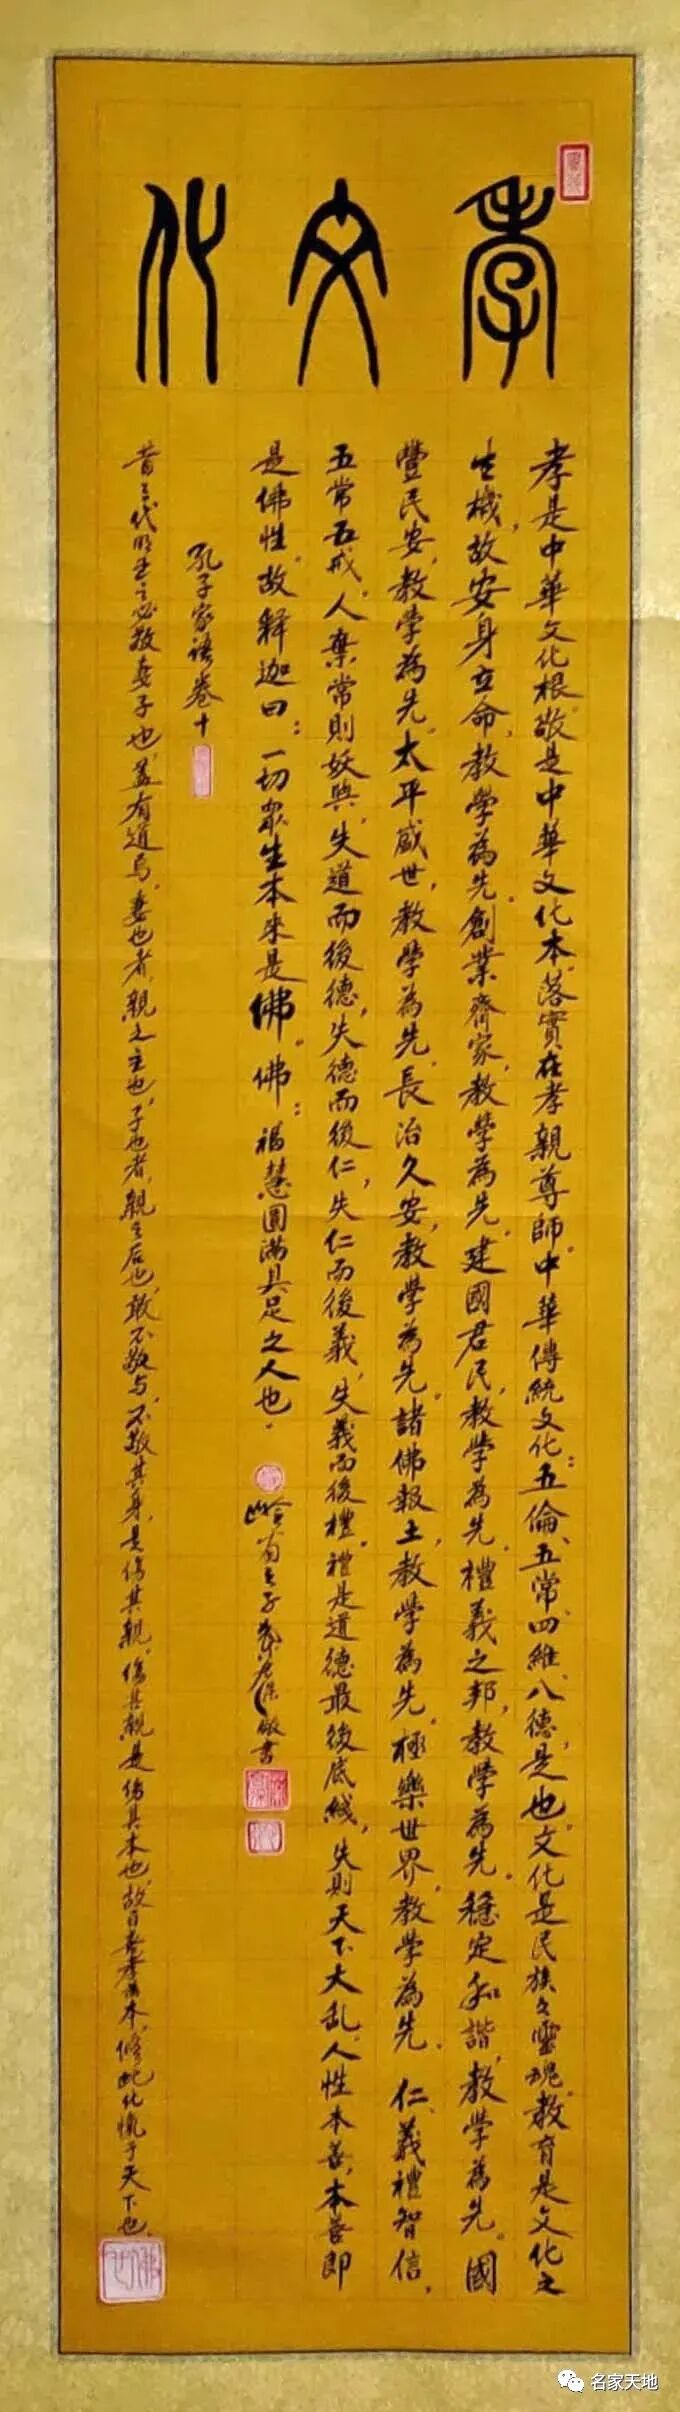 孝文化
孝是中華文化根。敬是中華文化本。落實在孝親尊師。中華傳統文化：五倫、五常、四維、八德，是也。文化是民族之靈魂。教育是文化之
生機，故安身立命，教學為先。創業齊家，教學為先。建國君民，教學為先。禮義之邦，教學為先。穩定和諧，教學為先。國
豐民安，教學為先。太平盛世，教學為先。長治久安，教學為先。諸佛報土，教學為先。極樂世界，教學為先。仁、義禮智信，
五常五戒。人棄常則妖興，失道而後德，失德而後仁，失仁而後義，失義而後禮。禮是道德最後底綫，失則天下大乱。人性本善，本善即
是佛性。故释迦曰：一切眾生本來是佛。佛：福慧圓滿具足之人也。
敬書
孔子家語卷十
昔三代明王之必敬妻子也，盖有道焉。妻也者，親之主也，子也者，親之后也，敢不敬与。不敬其身，是伤其親。伤其親，是伤其本也。本，修此化
天下也。
名家天地